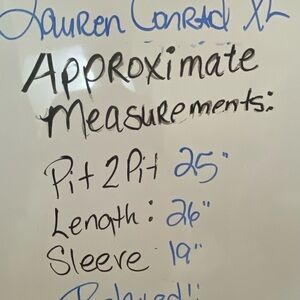 Lauren Conrad XL
Approximate
Measurements:
Pit 2 Pit 25"
Length: 26"
Sleeve 19"